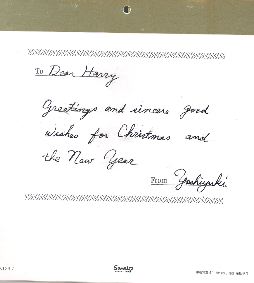 To Dear Harry
Greetings and sincere good
wishes for Christmas and
the New Year
From Yoshiyuki